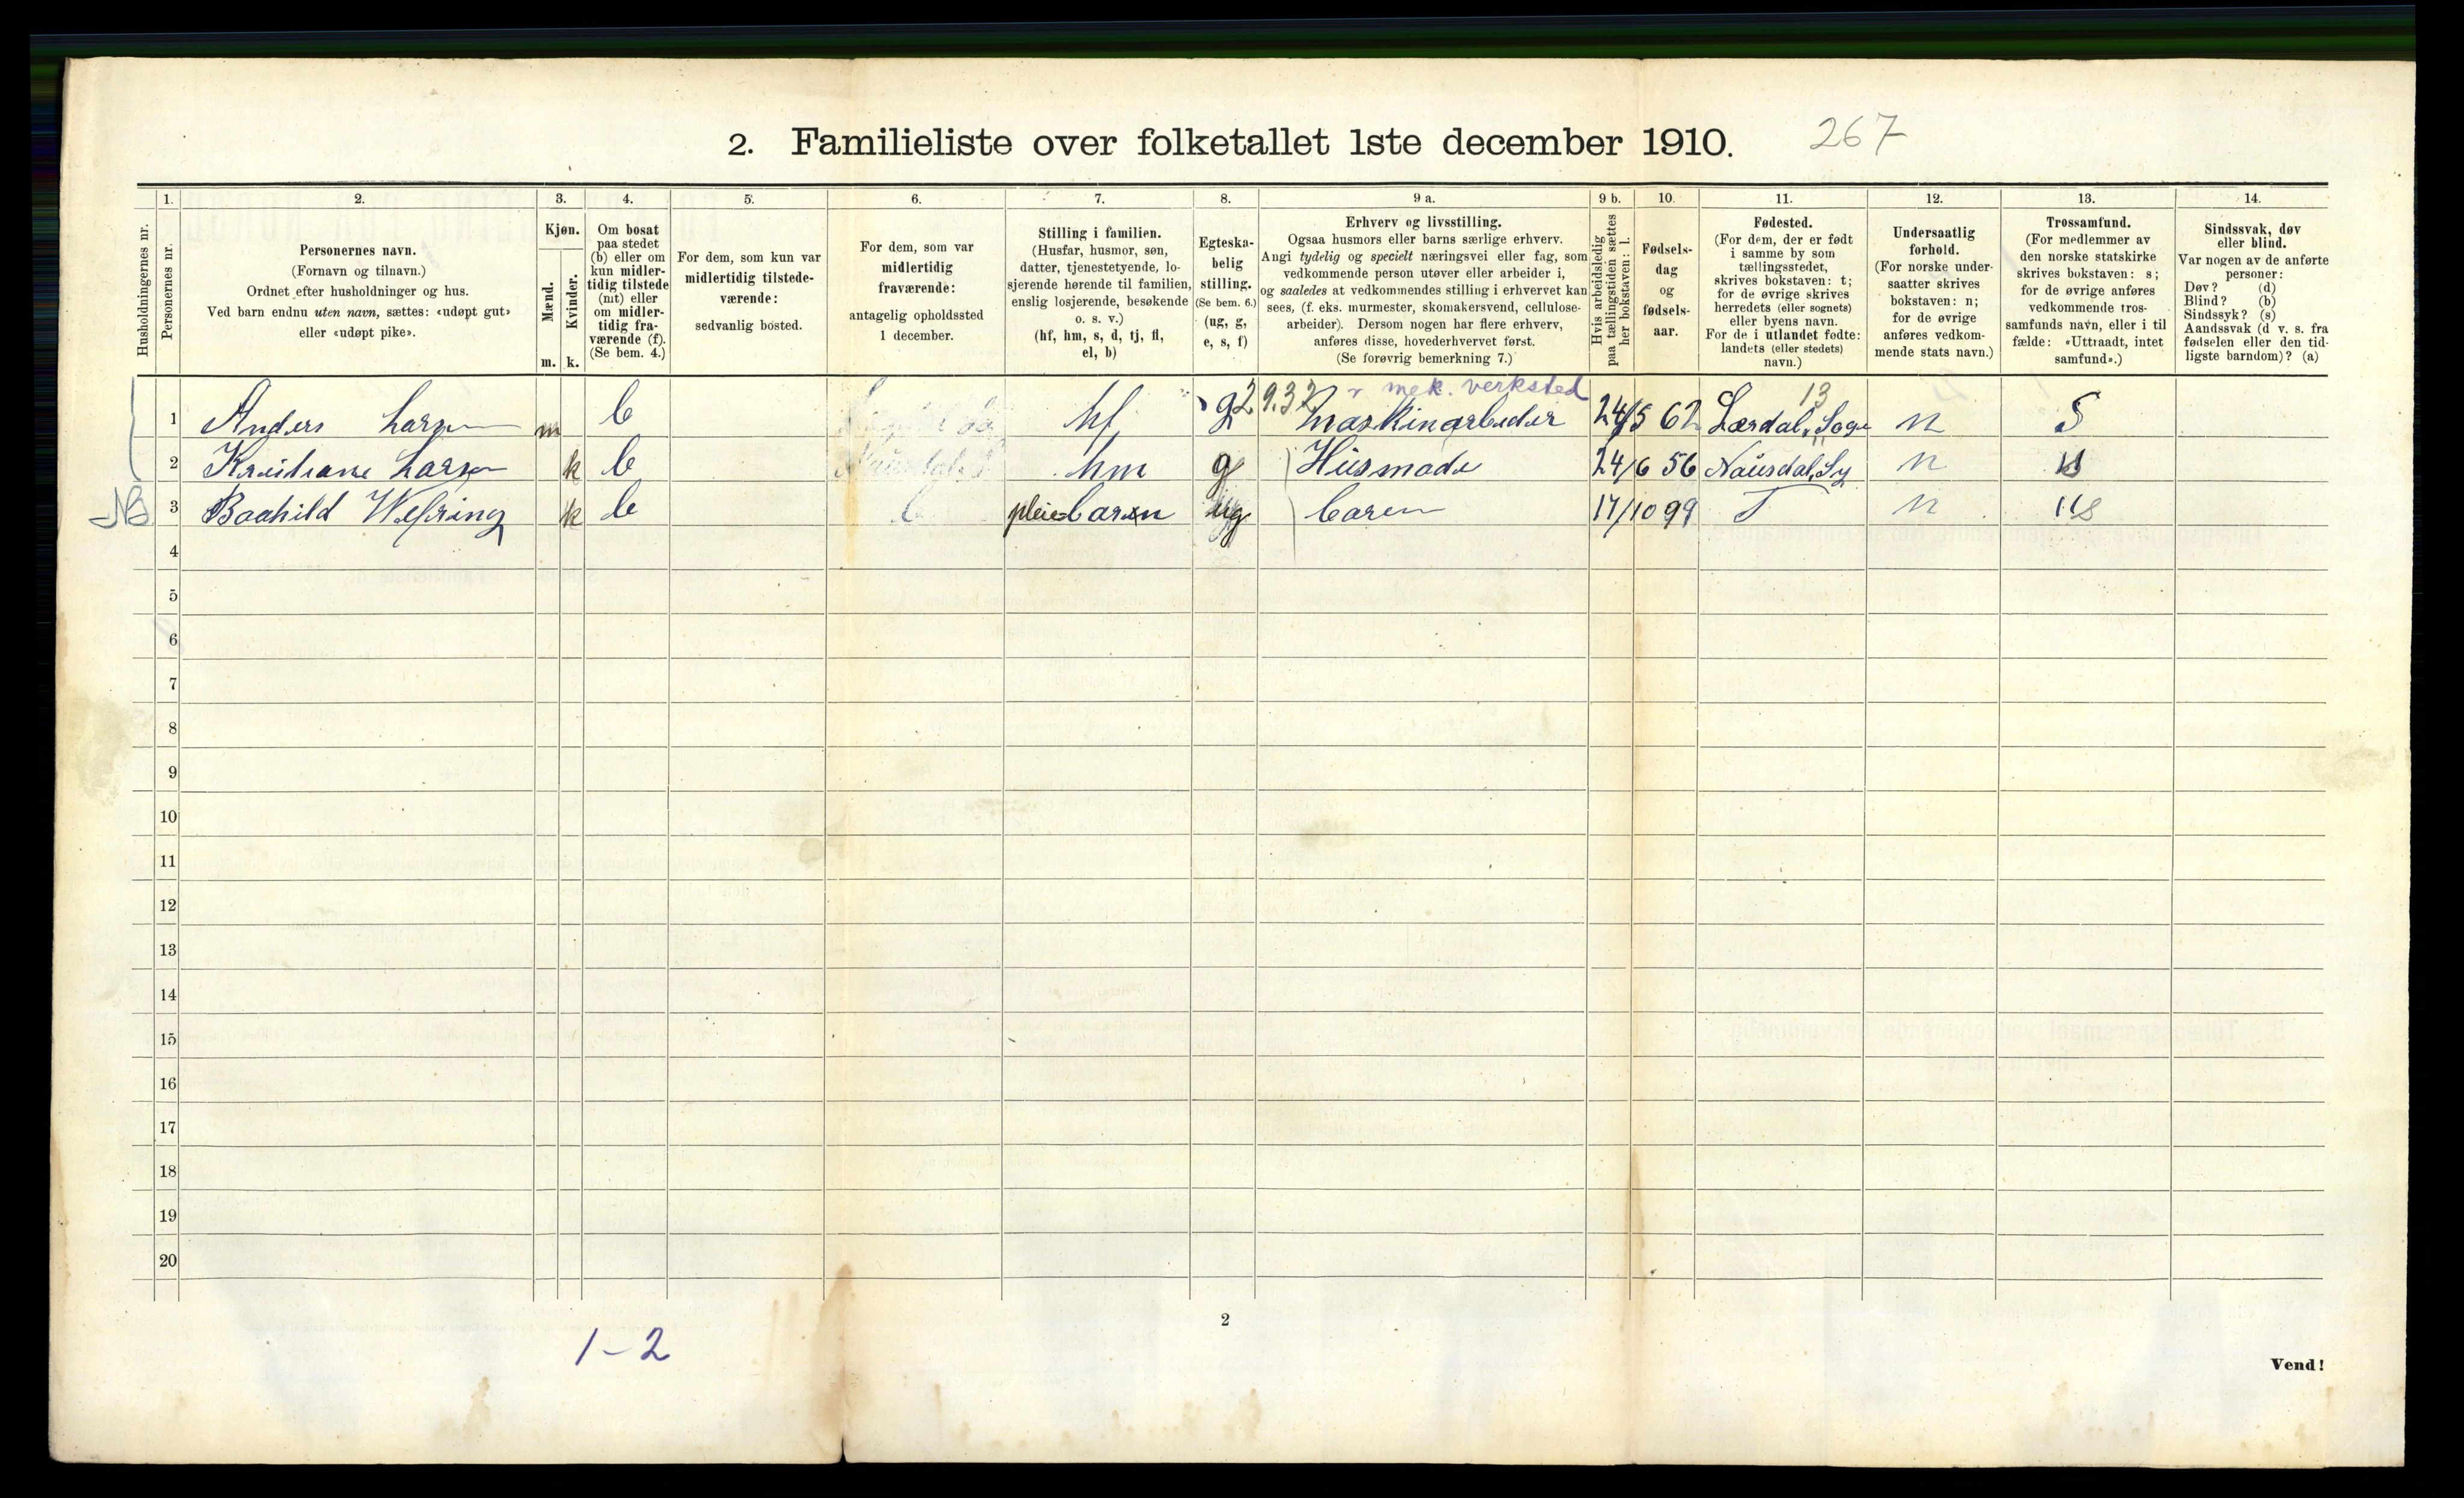 2. Familieliste over folketallet 1ste december 1910. 267
1. 2. 3. 4. 5. 6. 7. 8. 9 a. 9 b. 10. 11. 12. 13. 14.
Husholdningernes nr.
Personernes nr.
Personernes navn.
(Fornavn og tilnavn.)
Ordnet efter husholdninger og hus.
Ved barn endnu uten navn, sættes: «udøpt gut»
eller «udøpt pike».
Kjøn.
Mænd.
m.
Kvinder.
k.
Om bosat
paa stedet
(b) eller om
kun midler-
tidig tilstede
(mt) eller
om midler-
tidig fra-
værende (f).
(Se bem. 4.)
For dem, som kun var
midlertidig tilstede-
værende:
sedvanlig bosted.
For dem, som var
midlertidig
fraværende:
antagelig opholdssted
1 december.
Stilling i familien.
(Husfar, husmor, søn,
datter, tjenestetyende, lo-
sjerende hørende til familien,
enslig losjerende, besøkende
o. s. v.)
(hf, hm, s, d, tj, fl,
el, b)
Egteska-
belig
stilling.
(Se bem. 6.)
(ug, g,
e, s, f)
Erhverv og livsstilling.
Ogsaa husmors eller barns særlige erhverv.
Angi tydelig og specielt næringsvei eller fag, som
vedkommende person utøver eller arbeider i,
og saaledes at vedkommendes stilling i erhvervet kan
sees, (f. eks. murmester, skomakersvend, cellulose-
arbeider). Dersom nogen har flere erhverv,
anføres disse, hovederhvervet først.
(Se forøvrig bemerkning 7.)
Hvis arbeidsledig
paa tællingstiden sættes
her bokstaven: l.
Fødsels-
dag
og
fødsels-
aar.
Fødested.
(For dem, der er født
i samme by som
tællingsstedet,
skrives bokstaven: t;
for de øvrige skrives
herredets (eller sognets)
eller byens navn.
For de i utlandet fødte:
landets (eller stedets)
navn.)
Undersaatlig
forhold.
(For norske under-
saatter skrives
bokstaven: n;
for de øvrige
anføres vedkom-
mende stats navn.)
Trossamfund.
(For medlemmer av
den norske statskirke
skrives bokstaven: s;
for de øvrige anføres
vedkommende tros-
samfunds navn, eller i til
fælde: «Uttraadt, intet
samfund».)
Sindssvak, døv
eller blind.
Var nogen av de anførte
personer:
Døv? (d)
Blind? (b)
Sindssyk? (s)
Aandssvak (d v. s. fra
fødselen eller den tid-
ligste barndom)? (a)
mek. verksted 13
1 Anders Larsen m b hf g 2 9.32 Maskinarbeider 24/5 62 Lærdal, Sogn n S
2 Kristiane Larsen k b hm g Husmoder 24/6 56 Nausdal, n
NB 3 Boghild Wefring k b pleiebarn ug barn 17/10 99 T n
4
5
6
7
8
9
10
11
12
13
14
15
16
17
18
19
20
2
1 - 2
Vend!